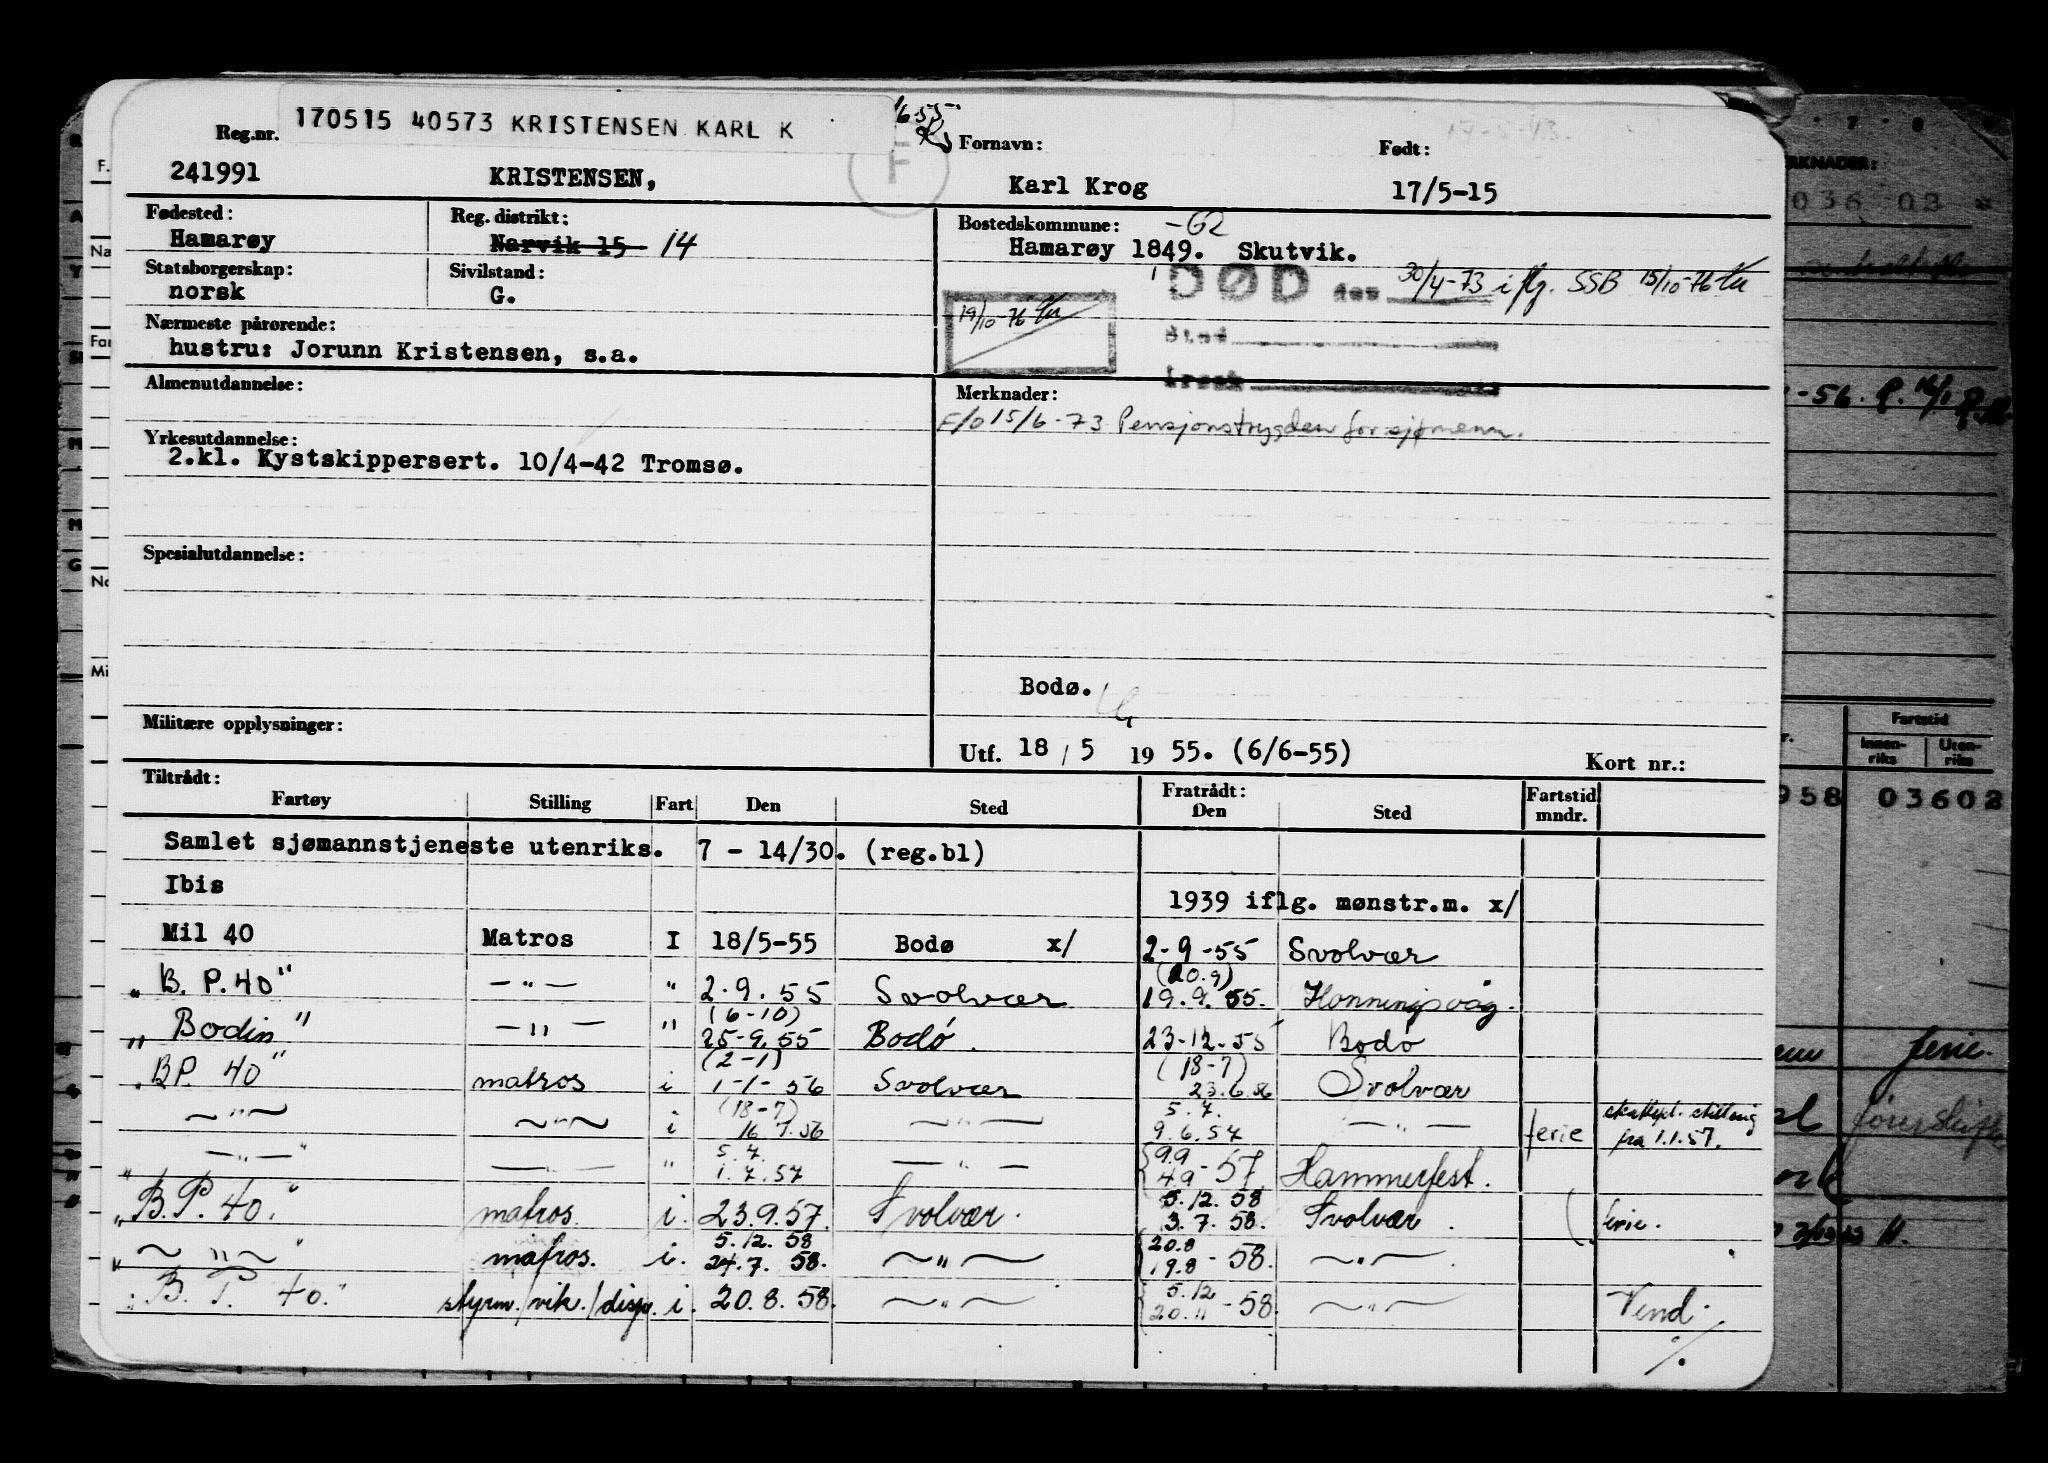 170515 40573 KRISTENSEN KARL K
Reg.nr. Fornavn: Født: 17-5-13.
241991 KRISTENSEN, F Karl Krog 17/5-15
Fødested: Reg. distrikt: Bostedskommune: -62
Hamarøy Narvik 15 14 Hamarøy 1849. Skutvik.
Statsborgerskap: Sivilstand:
norsk G. DØD den 30/4-73 iflg. SSB 15/10-76
Nærmeste pårørende: 19/10-76
hustru: Jorunn Kristensen, s.a.
Almenutdannelse: Merknader:
F/O 15/6-73 Pensjonstrygden for sjømenn.
Yrkesutdannelse:
2.kl. Kystskippersert. 10/4-42 Tromsø.
Spesialutdannelse:
Bodø.
Militære opplysninger:
Utf. 18 / 5 19 55. (6/6-55) Kort nr.:
Tiltrådt: Fratrådt:
Fartøy Stilling Fart Den Sted Den Sted Fartstid mndr.
Samlet sjømannstjeneste utenriks. 7 - 14/30. (reg.bl)
Ibis 1939 iflg. mønstr.m. x/
Mil 40 Matros I 18/5-55 Bodø x/ 2-9-55 Svolvær
(20.9)
„ B. P. 40" — " — " 2.9.55 Svolvær 19.9.55. Honningsvåg.
(6-10)
„ Bodin" — " — " 25-9.55 Bodø. 23-12-55 Bodø
(2-1) (18-7)
„ BP. 40" matros i 1-1-56 Svolvær 23.6.56 Svolvær
(18-7) 5.7.
— " — — " — i 16.7.56 — " — 9.6.57 — " — ferie skattepl. stilling fra 1.1.57.
5.7. 9.9
— " — — " — " 1.7.57 — " — 4.9-57 Hammerfest.
5.12.58
„ B. P. 40." matros. i. 23.9.57. Svolvær. 3.7.58. Svolvær. ferie.
5.12.58 20.8
— " — matros. i. 24.7.58. — " — 19.8-58. — " —
5.12
„ B. P. 40." styrm./vik./disp. i. 20.8.58. — " — 20.11-58. — " — Vend.
Fartstid
Innenriks Utenriks
958 03602
ferie.